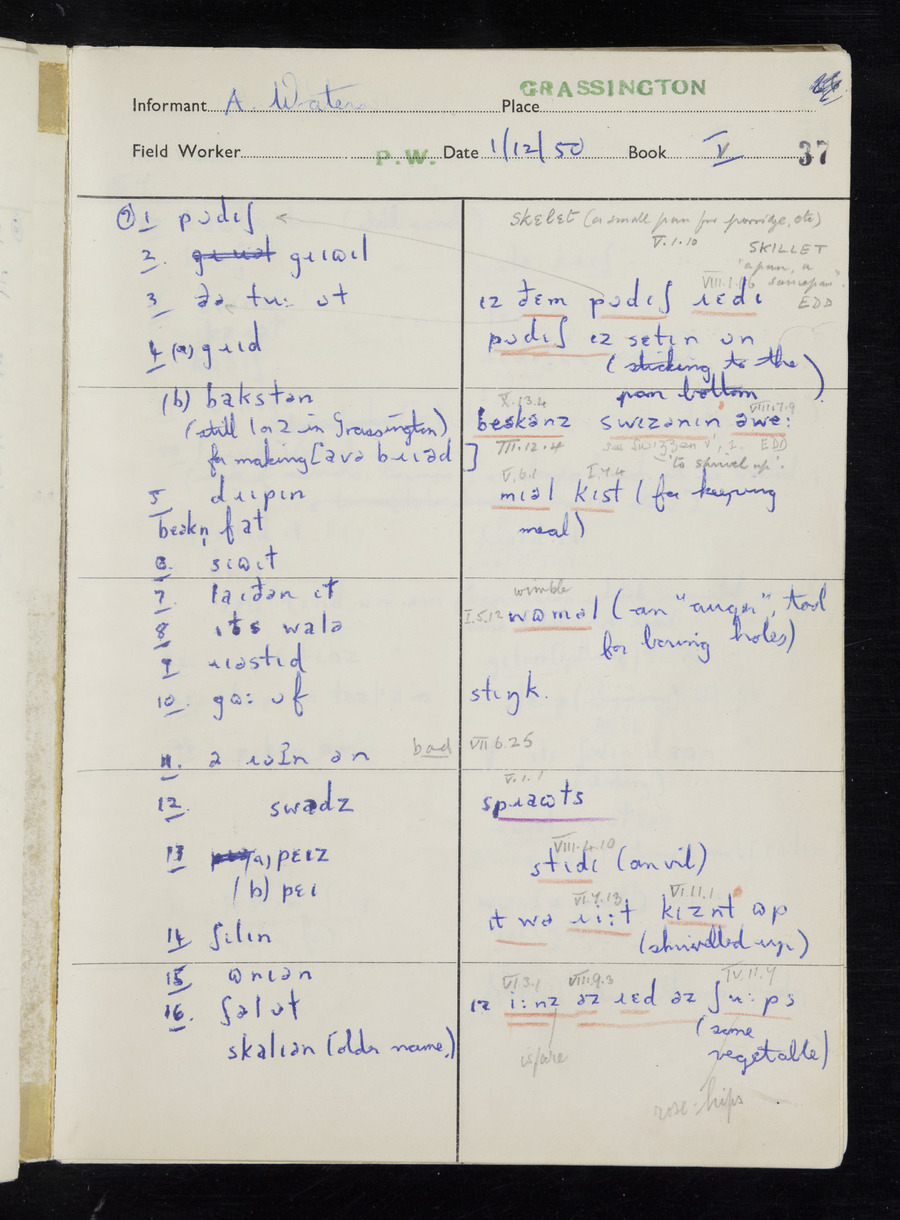 GRASSINGTON
Informant A. Waters Place
Field Worker P.W. Date 1/12/50 Book V 37
⑦ 1 pɔdɪʃ
2. gɹɪəl
3 ðə tu: ɔt
4 (a) gɹɪd
(b) bakstən
(still 1 or 2 in Grassington)
for making [avə bɹɪəd]
5 dɹɪpɪn
beəkn̩ fat
6. sɪʊɪt
7. laɪðən ɪt
8 ɪts walə
9 ɹɪəstɪd
10. gʊ: ɔf
11. ə ɹɔɪn ən bad
12. swadz
13 (a) pɛɪz
(b) pɛɪ
14 ʃɪlɪn
15 ʊnɪən
16. ʃalɔt
skalɪən (older name)
SKELET (a small pan for porridge, etc)
V.1.10
SKILLET
"a pan, a
VIII.1.16 saucepan".
EDD
ɪz ðɛm pɔdɪʃ ɹɛdɪ
pɔdɪʃ ɪz sɛtɪn ɔn
(sticking to the
pan bottom)
V.13.4 VIII.7.9
beəkənz swɪzənɪn əwe:
III.12.4 see swizzen v', 1. EDD
"to shrivel up".
V.6.1 I.7.4
mɪəl kɪst (for keeping
meal)
wimble
I.5.12 wʊməl (an "auger", tool
for boring holes)
stɪŋk.
VII.6.25
V.1.1
spɹaʊts
VIII.4.10
stɪdɪ (anvil)
VI.7.13 VI.11.1
ɪt wə ɹi:t kɪznt ʊp
(shrivelled up)
VI.3.1 VIII.9.3 IV.11.4
ɪz i:nz əz ɹɛd əz ʃu:ps
(some
vegetable)
is/are
rose-hips